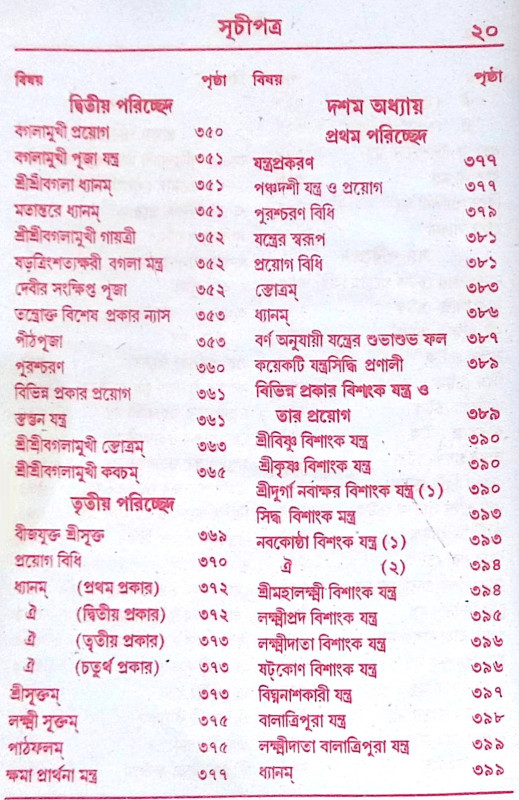 সূচীপত্র ২০
বিষয় পৃষ্ঠা
দ্বিতীয় পরিচ্ছেদ
বগলামুখী প্রয়োগ ৩৫০
বগলামুখী পূজা যন্ত্র ৩৫১
শ্রীশ্রীবগলা ধ্যানম্ ৩৫১
মতান্তরে ধ্যানম্ ৩৫১
শ্রীশ্রীবগলামুখী গায়ত্রী ৩৫২
ষড়ত্রিংশত্যক্ষরী বগলা মন্ত্র ৩৫২
দেবীর সংক্ষিপ্ত পূজা ৩৫২
তন্ত্রোক্ত বিশেষ প্রকার ন্যাস ৩৫৩
পীঠপূজা ৩৫৩
পূরশ্চরণ ৩৬০
বিভিন্ন প্রকার প্রয়োগ ৩৬১
স্তম্ভন যন্ত্র ৩৬১
শ্রীশ্রীবগলামুখী স্তোত্রম্ ৩৬৩
শ্রীশ্রীবগলামুখী কবচম্ ৩৬৫
তৃতীয় পরিচ্ছেদ
বীজযুক্ত শ্রীসূক্ত ৩৬৯
প্রয়োগ বিধি ৩৭০
ধ্যানম্ (প্রথম প্রকার) ৩৭২
ঐ (দ্বিতীয় প্রকার) ৩৭২
ঐ (তৃতীয় প্রকার) ৩৭৩
ঐ (চতুর্থ প্রকার) ৩৭৩
শ্রীসূক্তম্ ৩৭৩
লক্ষ্মী সূক্তম্ ৩৭৫
পাঠফলম্ ৩৭৫
ক্ষমা প্রার্থনা মন্ত্র ৩৭৭
বিষয় পৃষ্ঠা
দশম অধ্যায়
প্রথম পরিচ্ছেদ
যন্ত্রপ্রকরণ ৩৭৭
পঞ্চদশী যন্ত্র ও প্রয়োগ ৩৭৭
পুরশ্চরণ বিধি ৩৭৯
যন্ত্রের স্বরূপ ৩৮১
প্রয়োগ বিধি ৩৮১
স্তোত্রম্ ৩৮৩
ধ্যানম্ ৩৮৬
বর্ণ অনুযায়ী যন্ত্রের শুভাশুভ ফল ৩৮৭
কয়েকটি যন্ত্রসিদ্ধি প্রণালী ৩৮৯
বিভিন্ন প্রকার বিশাংক যন্ত্র ও
তার প্রয়োগ ৩৮৯
শ্রীবিষ্ণু বিশাংক যন্ত্র ৩৯০
শ্রীকৃষ্ণ বিশাংক যন্ত্র ৩৯০
শ্রীদুর্গা নবাক্ষর বিশাংক যন্ত্র (১) ৩৯০
সিদ্ধ বিশাংক মন্ত্র ৩৯৩
নবকোষ্ঠা বিশাংক যন্ত্র (১) ৩৯৩
ঐ (২) ৩৯৪
শ্রীমহালক্ষ্মী বিশাংক যন্ত্র ৩৯৪
লক্ষ্মীপ্রদ বিশাংক যন্ত্র ৩৯৫
লক্ষ্মীদাতা বিশাংক যন্ত্র ৩৯৬
ষট্‌কোণ বিশাংক যন্ত্র ৩৯৬
বিঘ্ননাশকারী যন্ত্র ৩৯৭
বালাত্রিপুরা যন্ত্র ৩৯৮
লক্ষ্মীদাতা বালাত্রিপুরা যন্ত্র ৩৯৯
ধ্যানম্ ৩৯৯